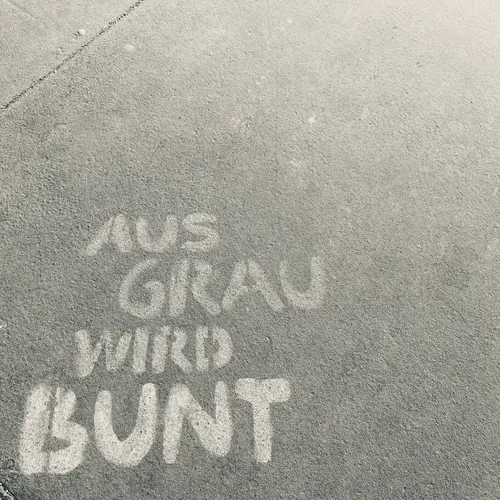 AUS
GRAU
WIRD
BUNT